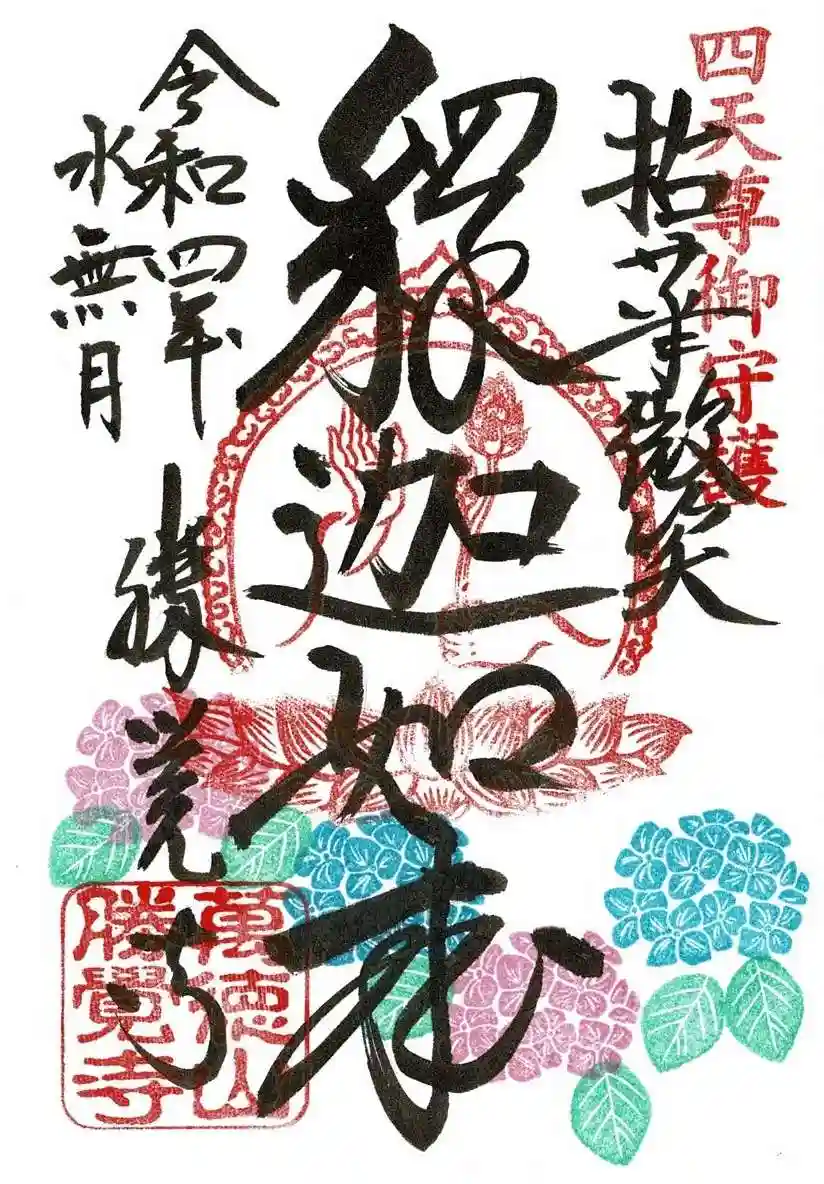 四天尊御守護
拈華微笑
釋迦如来
令和四年
水無月
勝覚寺
萬徳山
勝覺寺